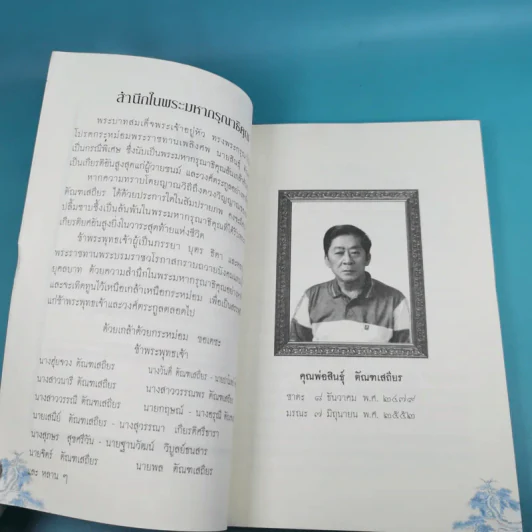 สำนึกในพระมหากรุณาธิคุณ
พระบาทสมเด็จพระเจ้าอยู่หัว ทรงพระกรุณา
โปรดกระหม่อมพระราชทานเพลิงศพ นายสินธุ์
เป็นกรณีพิเศษ ซึ่งนับเป็นพระมหากรุณาธิคุณล้นเกล้า
เป็นเกียรติอันสูงสุดแก่ผู้วายชนม์ และวงศ์ตระกูล
หากความทราบโดยญาณวิถีถึงดวงวิญญาณ
ตัณฑเสถียร ได้ด้วยประการใดในสัมปรายภพ
ปลื้มซาบซึ้งเป็นล้นพ้นในพระมหากรุณาธิคุณที่ได้รับ
เกียรติยศอันสูงยิ่งในวาระสุดท้ายแห่งชีวิต
ข้าพระพุทธเจ้าผู้เป็นภรรยา บุตร ธิดา
พระราชทานพระบรมราชวโรกาสกราบถวายบังคม
ยุคลบาท ด้วยความสำนึกในพระมหากรุณาธิคุณ
และจะเทิดทูนไว้เหนือเกล้าเหนือกระหม่อม เพื่อเป็น
แก่ข้าพระพุทธเจ้าและวงศ์ตระกูลตลอดไป
ด้วยเกล้าด้วยกระหม่อม ขอเดชะ
ข้าพระพุทธเจ้า
นางสุ่ยจวง ตัณฑเสถียร นางวันดี ตัณฑเสถียร
นางสาวนารี ตัณฑเสถียร นางสาววรรณพร
นางสาววรรณี ตัณฑเสถียร นายกฤษณ์ - นางอรุณี
นายเสนีย์ ตัณฑเสถียร - นางสุวรรณา เกียรติศรีชารา
นางสุภร สุขศรีวัน - นายฐานวัฒน์ วิบูลย์ธนสาร
นายจิตร์ ตัณฑเสถียร นายพล ตัณฑเสถียร
และ หลาน ๆ
คุณพ่อสินธุ์ ตัณฑเสถียร
ชาตะ ๘ ธันวาคม พ.ศ. ๒๔๗๗
มรณะ ๗ มิถุนายน พ.ศ. ๒๕๕๒